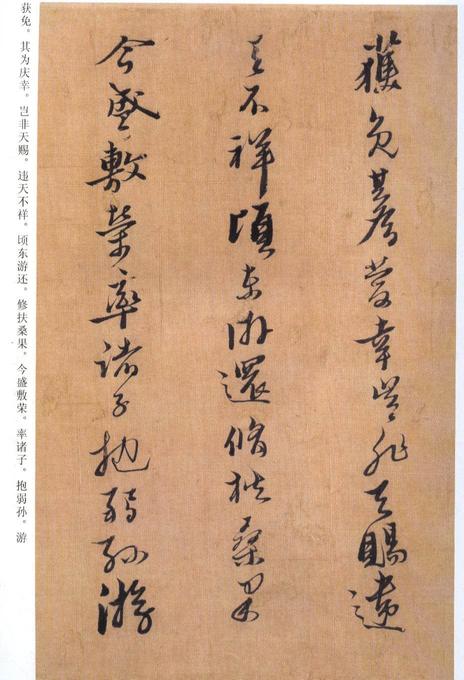 獲免其為慶幸豈非天賜違
天不祥頃東游還脩扶桑果
今盛敷榮率諸子抱弱孫游
获免。其为庆幸。岂非天赐。违天不祥。顷东游还。修扶桑果。今盛敷荣。率诸子。抱弱孙。游